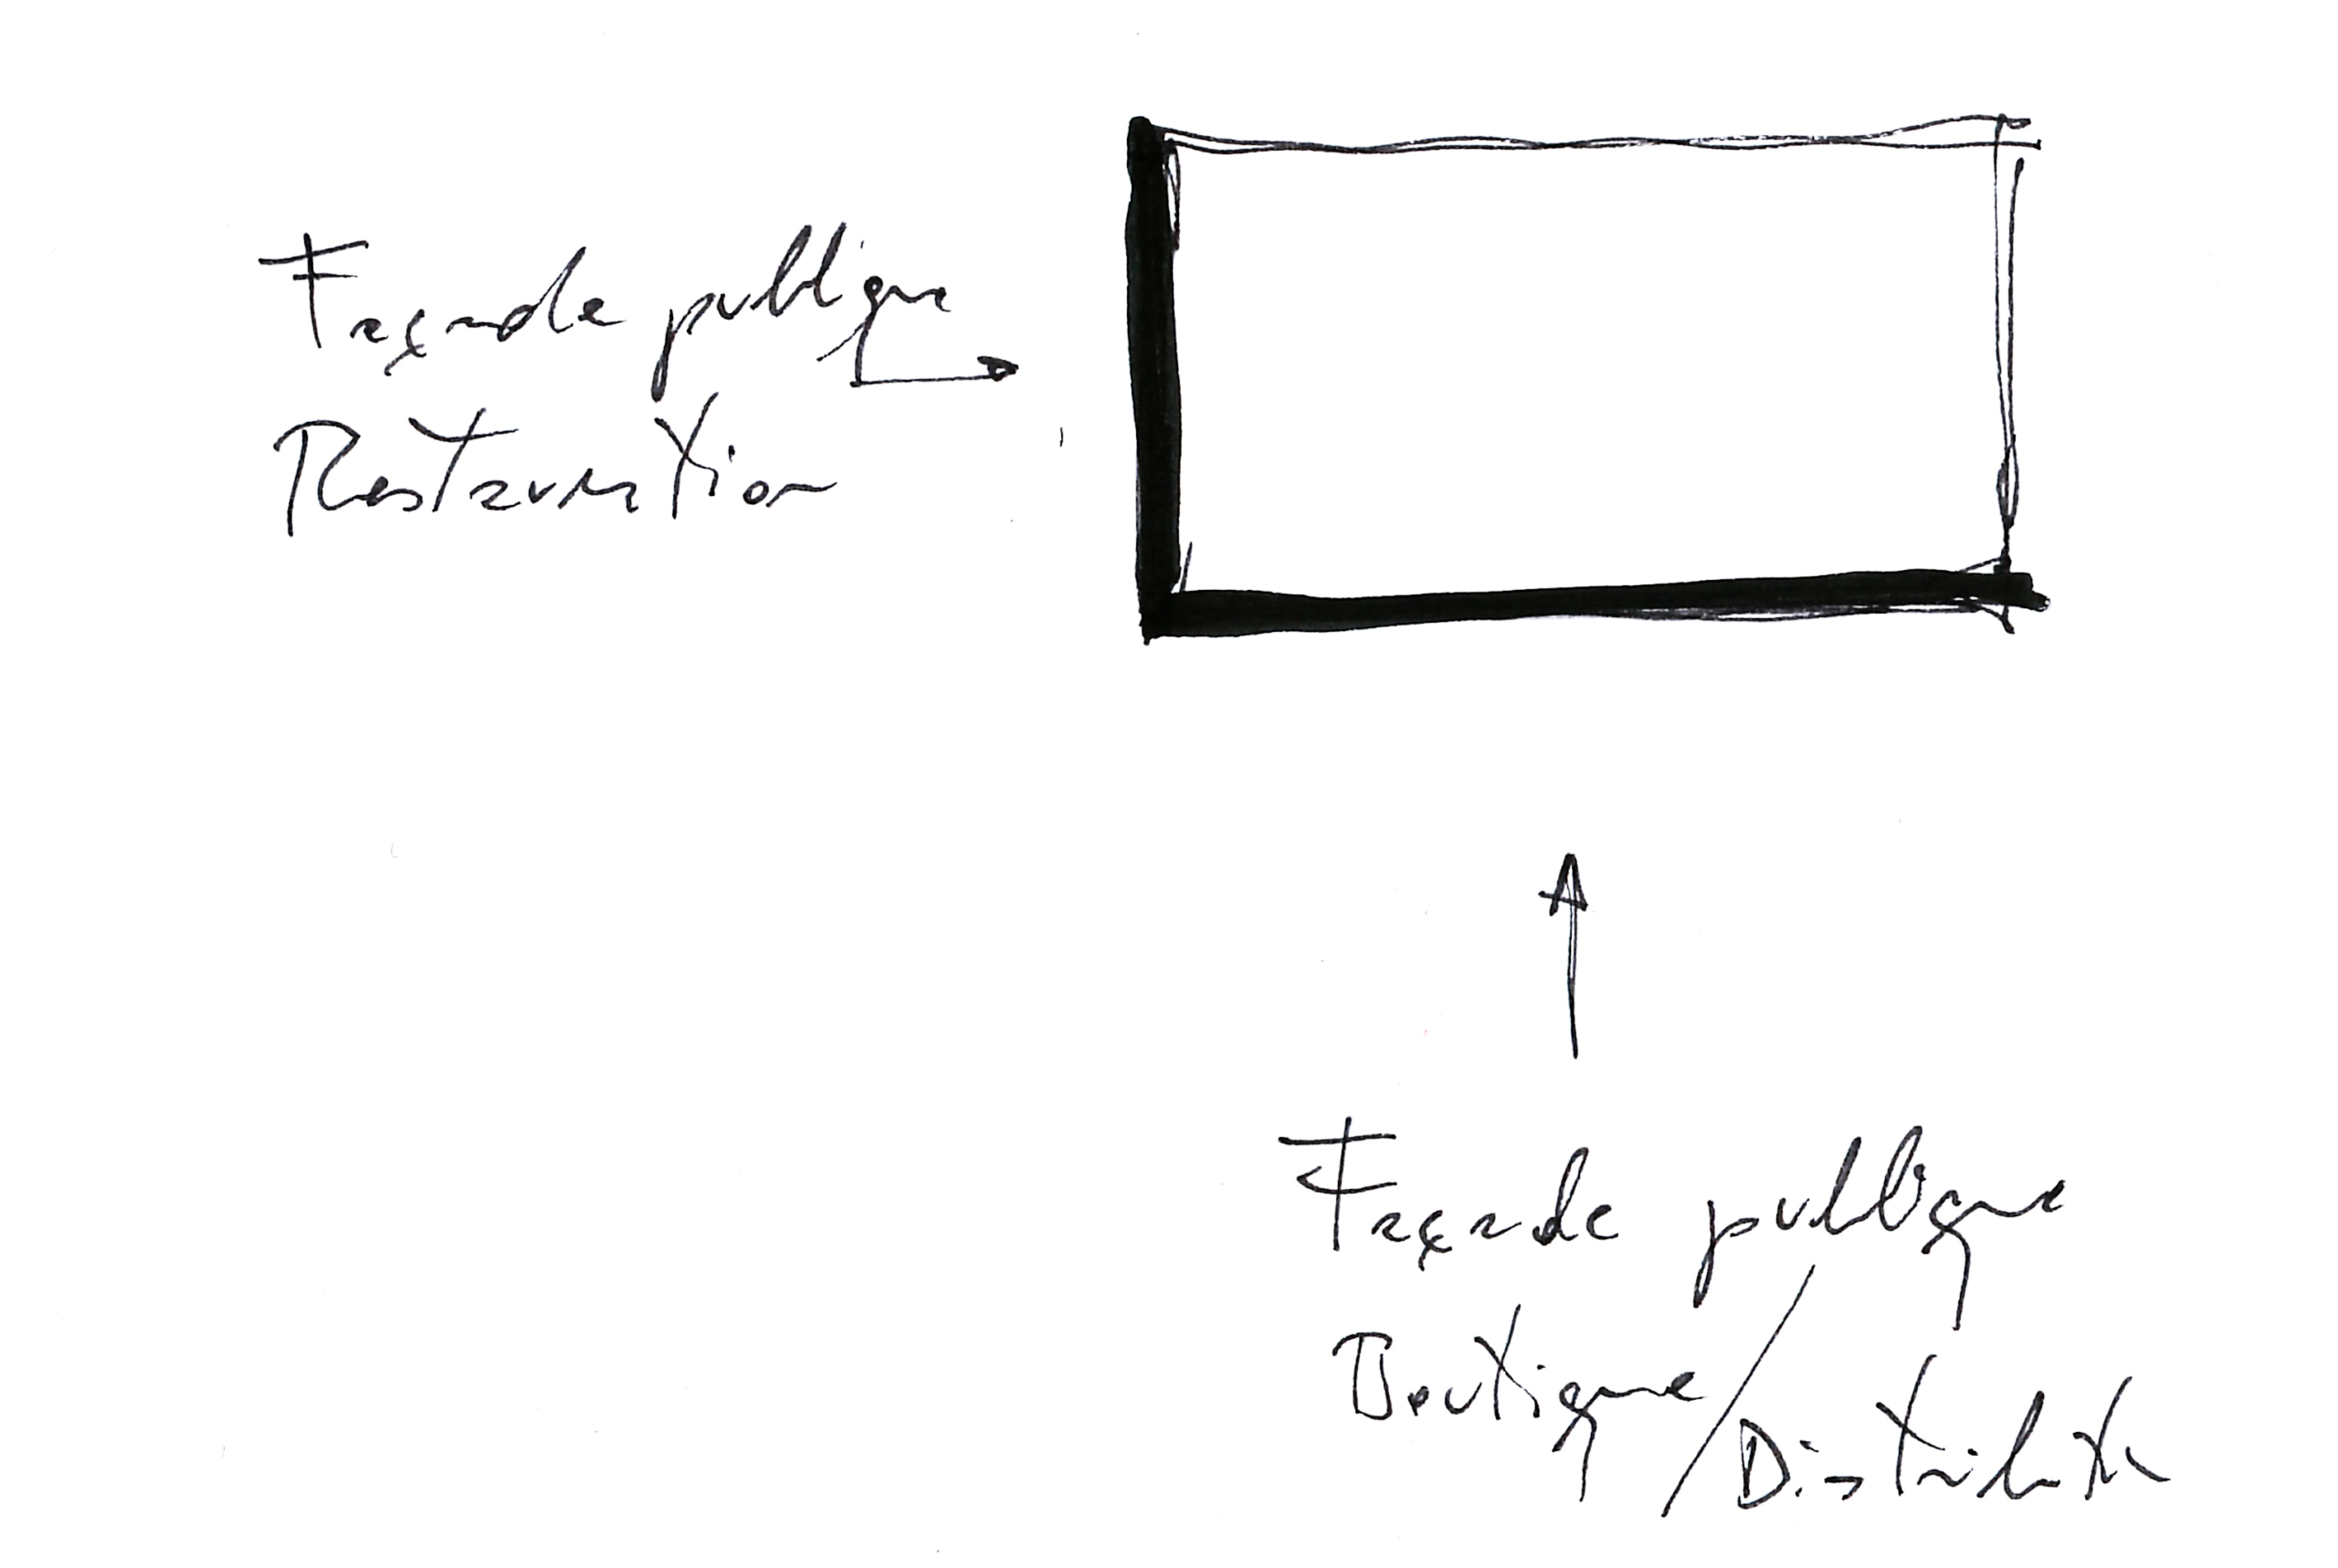 Façade publique
Restauration
Façade publique
Boutique /